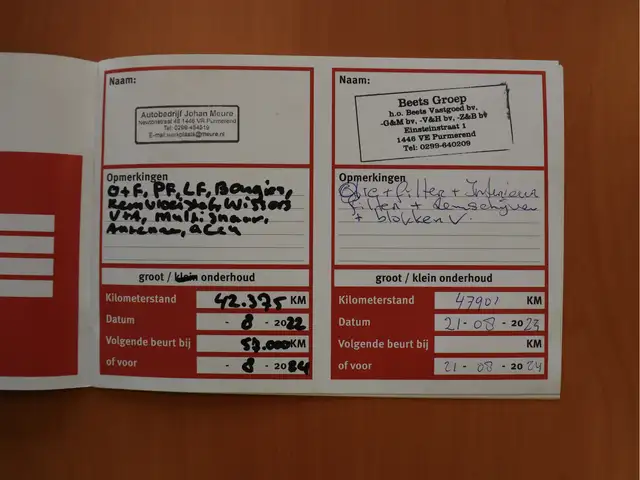 Naam:
Autobedrijf Johan Meure
Newtonstraat 48 1446 VR Purmerend
Tel: 0299-434919
E-mail:werkplaats@meure.nl
Opmerkingen
O+F, PF, LF, Bougies,
Remvloeistof, Wissers
V+A, Multisnaar,
Antenne, accu
groot / klein onderhoud
Kilometerstand 42.375 KM
Datum - 8 - 2022
Volgende beurt bij 57.000 KM
of voor - 8 - 2024
Naam:
Beets Groep
h.o. Beets Vastgoed bv,
-G&M bv, -V&H bv, -Z&B bv
Einsteinstraat 1
1446 VE Purmerend
Tel: 0299-640209
Opmerkingen
Olie + filter + Interieur
filter + remschijven
+ blokken V.
groot / klein onderhoud
Kilometerstand 47901 KM
Datum 21 - 08 - 2023
Volgende beurt bij KM
of voor 21 - 08 - 2024